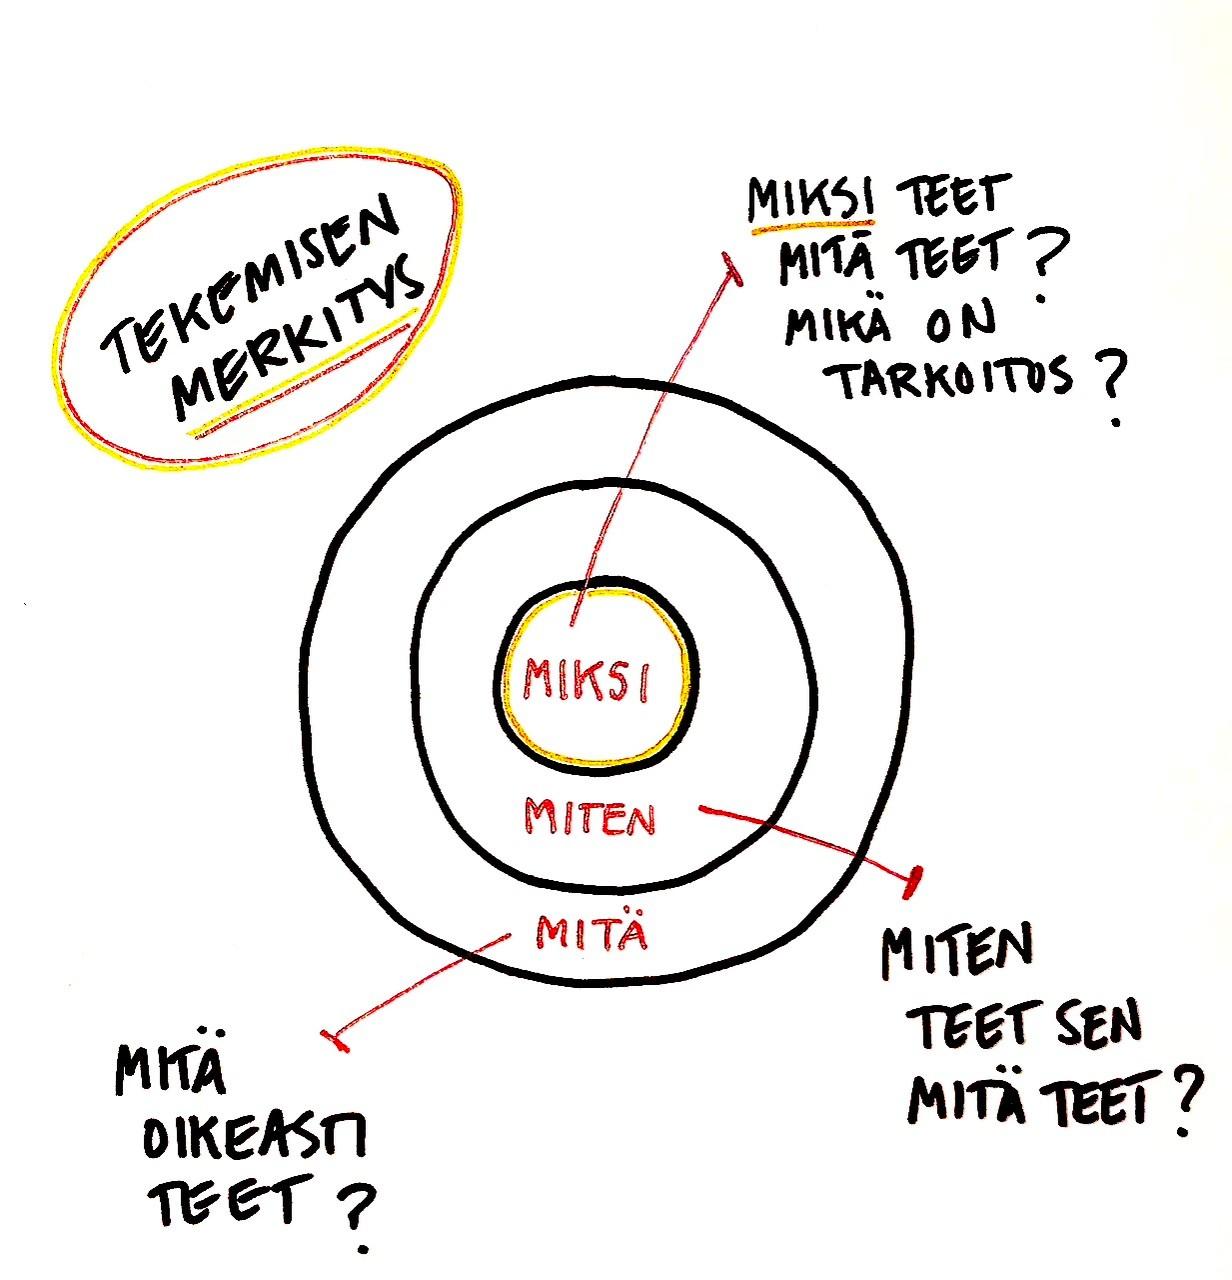 TEKEMISEN
MERKITYS
MIKSI TEET
MITÄ TEET?
MIKÄ ON
TARKOITUS?
MIKSI
MITEN
MITÄ
MITEN
TEET SEN
MITÄ TEET?
MITÄ
OIKEASTI
TEET?